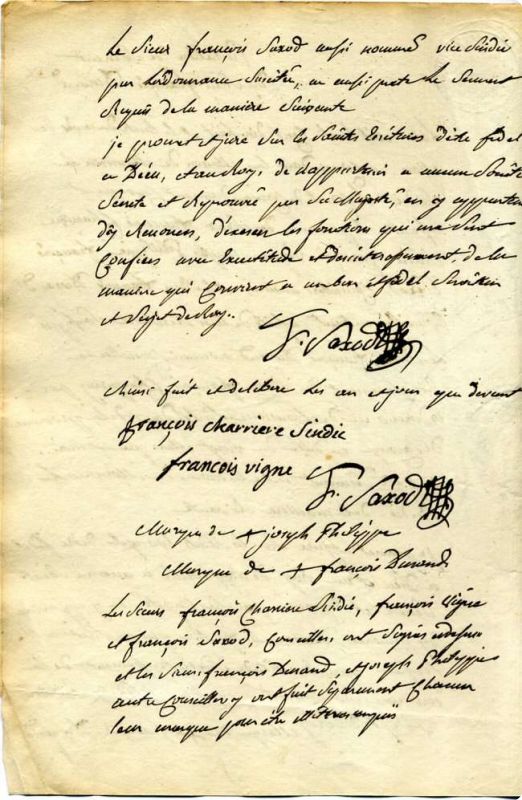 Le Sieur françois Saxod aussi nommé vice Sindic
par Lordonnance Sucitée, a aussi preté Le Serment
Requis de la maniere Suivante
je promet et jure Sur les Saintes Ecritures d'etre fidel
a Dieu, et au Roy, de n'appartenir a aucune Société
Secrete et Reprouvé par Sa Majesté, en y appartenant
d'y Renoncer, d'exercer les fonctions qui me Sont
Confiées avec Exactitude et desinteressement de la
maniere qui Convient a un bon et fidel Serviteur
et Sujet du Roy.
f. Saxod
Ainsi fait et deliberé Les an et jour que devant
françois charriere Sindic
francois vigne
f. Saxod
Marque de + joseph Philippe
Marque de + françois Durand
Les Sieurs françois Charriere Sindic, françois Vigne
et françois Saxod, Conseiller, ont Signés
et les Sieurs françois Durand, et joseph Philippe
autre Conseiller y ont fait Separement Chacun
leur marque pour être